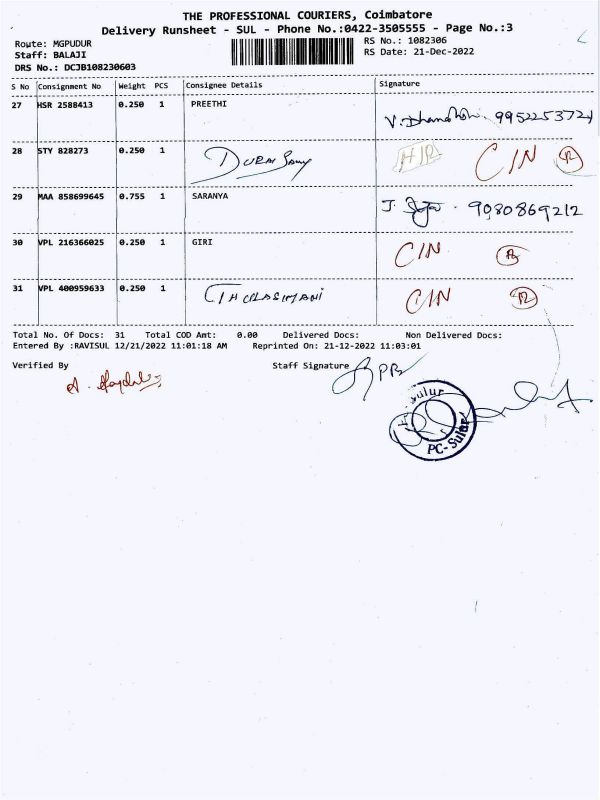 THE PROFESSIONAL COURIERS, Coimbatore
Delivery Runsheet - SUL - Phone No.:0422-3505555 - Page No.:3
Route: MGPUDUR RS No.: 1082306
Staff: BALAJI RS Date: 21-Dec-2022
DRS No.: DCJB108230603
S No Consignment No Weight PCS Consignee Details Signature
27 HSR 2588413 0.250 1 PREETHI 9952253724
28 STY 828273 0.250 1 DURAI Samy CIN R
29 MAA 858699645 0.755 1 SARANYA J. 9080869212
30 VPL 216366025 0.250 1 GIRI CIN R
31 VPL 400959633 0.250 1 CIN R
Total No. Of Docs: 31 Total COD Amt: 0.00 Delivered Docs: Non Delivered Docs:
Entered By :RAVISUL 12/21/2022 11:01:18 AM Reprinted On: 21-12-2022 11:03:01
Verified By Staff Signature
Sulur
PC-Sulur